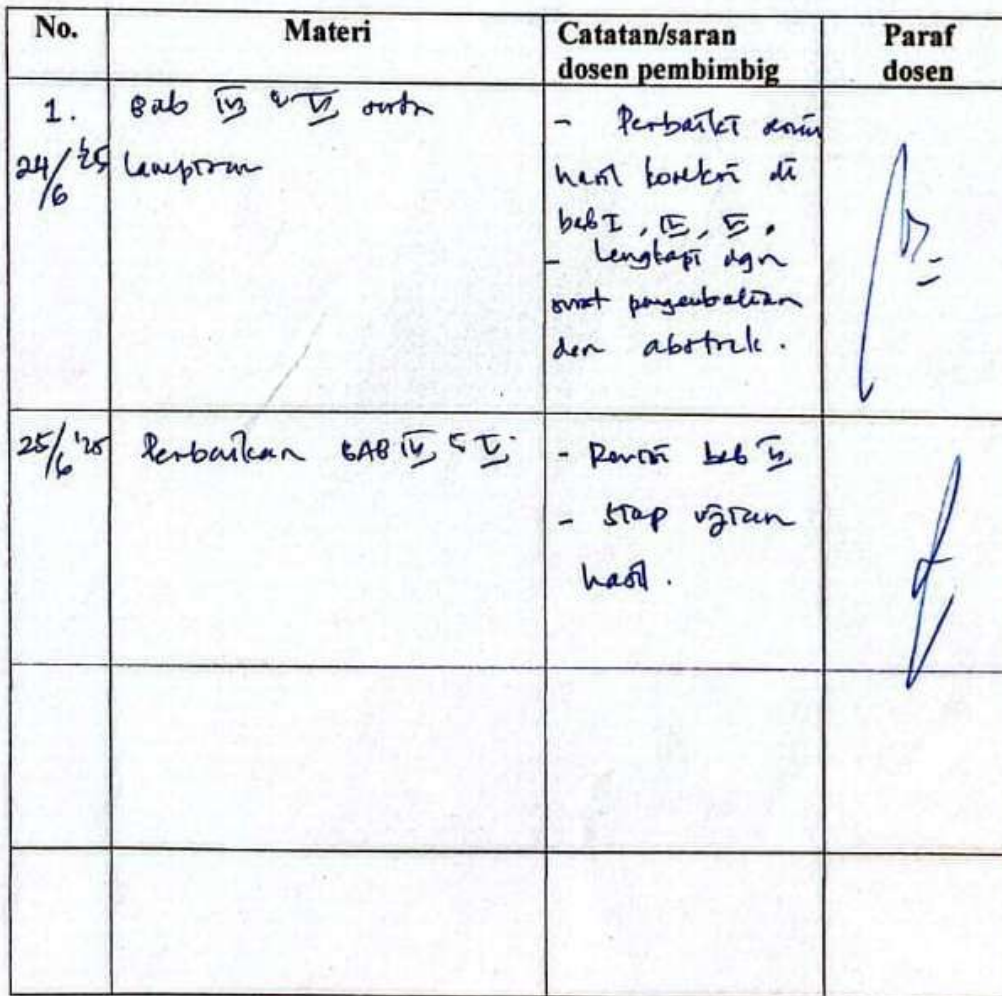 No. Materi Catatan/saran Paraf
dosen pembimbig dosen
1. Bab IV & V serta
24/6 '25 lampiran
- Perbaiki sesuai
hasil koreksi di
bab I, IV, V.
- Lengkapi dgn
surat pengembalian
dan abstrak.
25/6 '25 Perbaikan BAB IV & V.
- Revisi bab IV
- Siap ujian
hasil.